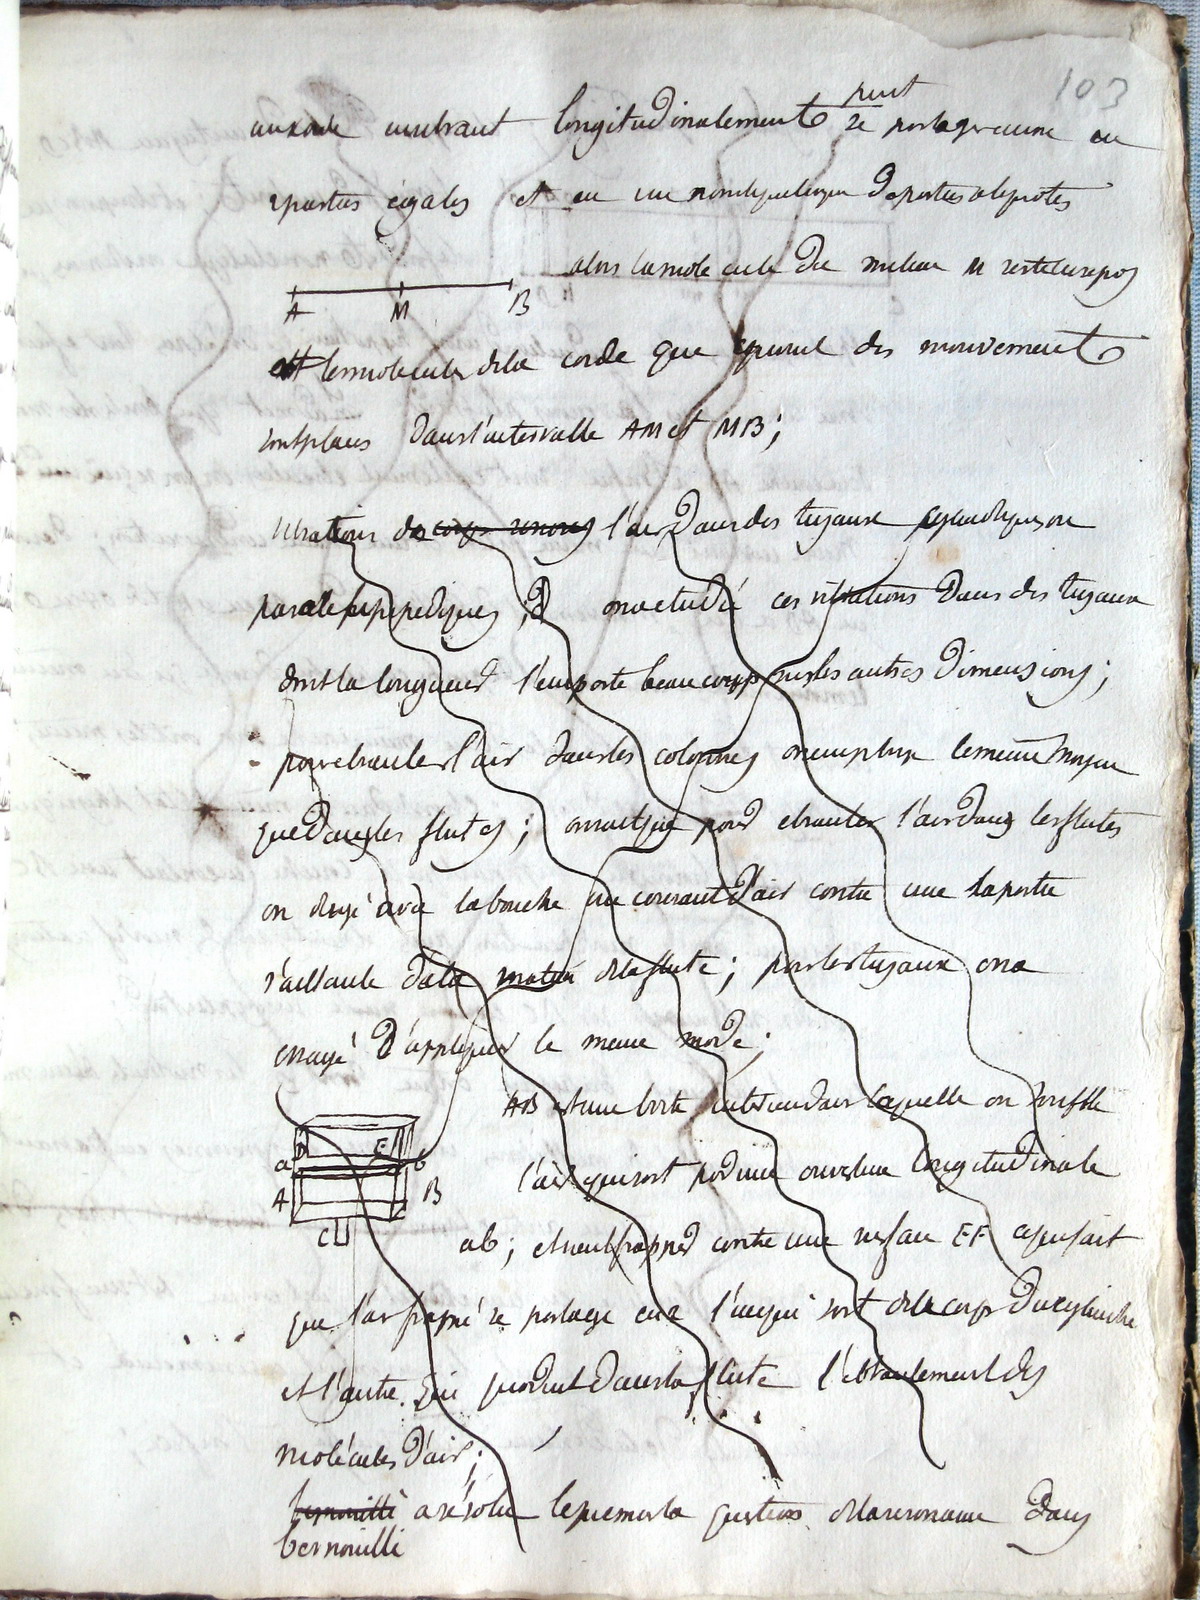 103
peut
une corde vibrant longitudinalement se partager en
2 parties égales et en un nombre quelconque de parties aliquotes
alors la molecule du milieu M reste en repos
A M B
les molecules de la corde que des mouvements
sont placés dans l'intervalle AM et MB;
vibrations de corps sonores l'air dans des tuyaux cylindriques ou
parallelepipediques; on a etudié ces vibrations dans des tuyaux
dont la longueur l'emporte beaucoup sur les autres dimensions;
pour ebranler l'air dans les colonnes on employe le meme moyen
que dans les flutes; on sait que pour ebranler l'air dans les flutes
on dirige avec la bouche un courant d'air contre une la partie
saillante de la matiere de la flute; pour les tuyaux on a
essayé d'appliquer le meme mode;
AB est une boite dans laquelle on souffle
a D E b
l'air qui sort par une ouverture longitudinale
A B
ab; et vient frapper contre une surface EF ce qui fait
C
que l'air frappé se partage en 2 l'un qui sort de le corps du cylindre
et l'autre qui produit dans la flute l'ebranlement des
molécules d'air;
bernouilli a résolu le premier la question de la resonance dans
bernouilli